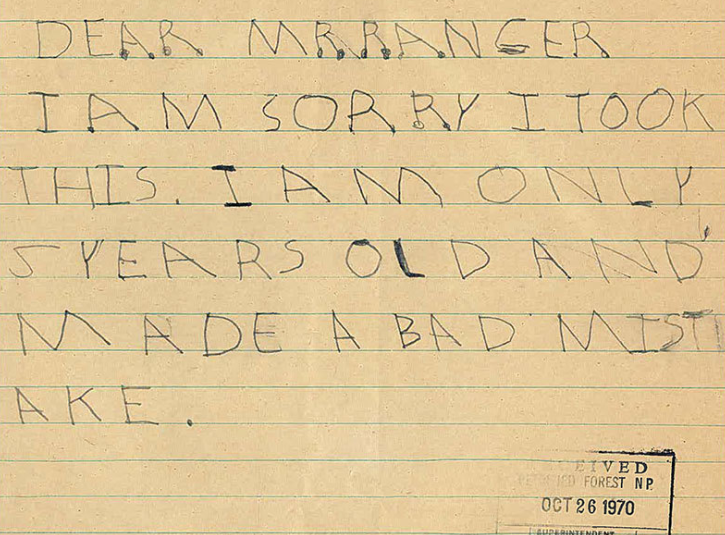 DEAR MR RANGER
I AM SORRY I TOOK
THIS. I AM ONLY
5 YEARS OLD AND
MADE A BAD MIST
AKE.
RECEIVED
PETRIFIED FOREST N P
OCT 26 1970
SUPERINTENDENT